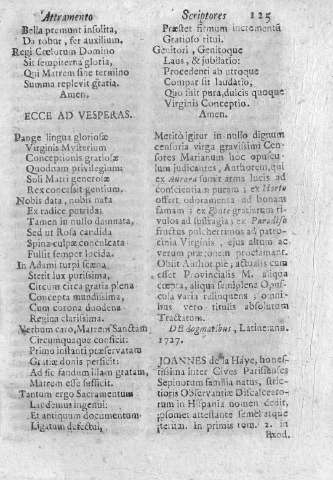 Attramento
Scriptores 125
Bella premunt insolita,
Da robur, fer auxilium.
Regi Cœlorum Domino
Sit sempiterna gloria,
Qui Matrem sine termino
Summa replevit gratia.
Amen.
ECCE AD VESPERAS.
Pange lingua gloriosæ
Virginis Mysterium
Conceptionis gratiosæ
Quodnam privilegium
Soli Matri generosæ
Rex concessit gentium.
Nobis data, nobis nata
Ex radice putrida;
Tamen in nullo damnata,
Sed ut Rosa candida
Spina culpæ conculcata
Fulsit semper lucida.
In Adami turpi scena
Stetit lux purissima,
Circum circa gratia plena
Concepta mundissima,
Cum corona duodena
Regina clarissima.
Verbum caro, Matrem Sanctam
Circumquaque conficit:
Primo instanti præservatam
Gratiæ donis perficit:
Ad sic fandum illam gratam,
Matrem esse sufficit.
Tantum ergo Sacramentum
Laudemus ingenui:
Et antiquum documentum
Ligatum defectui,
Præstet firmum incrementa
Gratioso ritui.
Genitori, Genitoque
Laus, & jubilatio:
Procedenti ab utroque
Compar sit laudatio,
Quo fuit pura, dulcis quoque
Virginis Conceptio.
Amen.
Meritò igitur in nullo dignum
censoria virga gravissimi Cen-
sores Marianum hoc opuscu-
lum judicantes, Authorem, qui
ex Aurora sumit arma lucis ad
conscientiam puram; ex Horto
offert odoramenta ad bonam
famam; ex Fonte gratiarum ri-
vulos ad suffragia; ex Paradiso
fructus pulcherrimos ad patro-
cinia Virginis, ejus altum ac
verum præconem proclamant.
Obiit Author piè, actualis cum
esset Provincialis M. aliqua
cœpta, aliqua semiplena Opus-
cula varia relinquens; omni-
bus vero titulis absolutum
Tractatum.
DE dogmatibus, Latine ann.
1727.
JOANNES de la Haye, hones-
tissima inter Cives Parisienses
Sepinotum familia natus, stric-
tioris Observantiæ Discalceato-
rum in Hispania nomen dedit,
ipsomet attestante semel atque
iterum. In primis tom. 2. in
Exod.